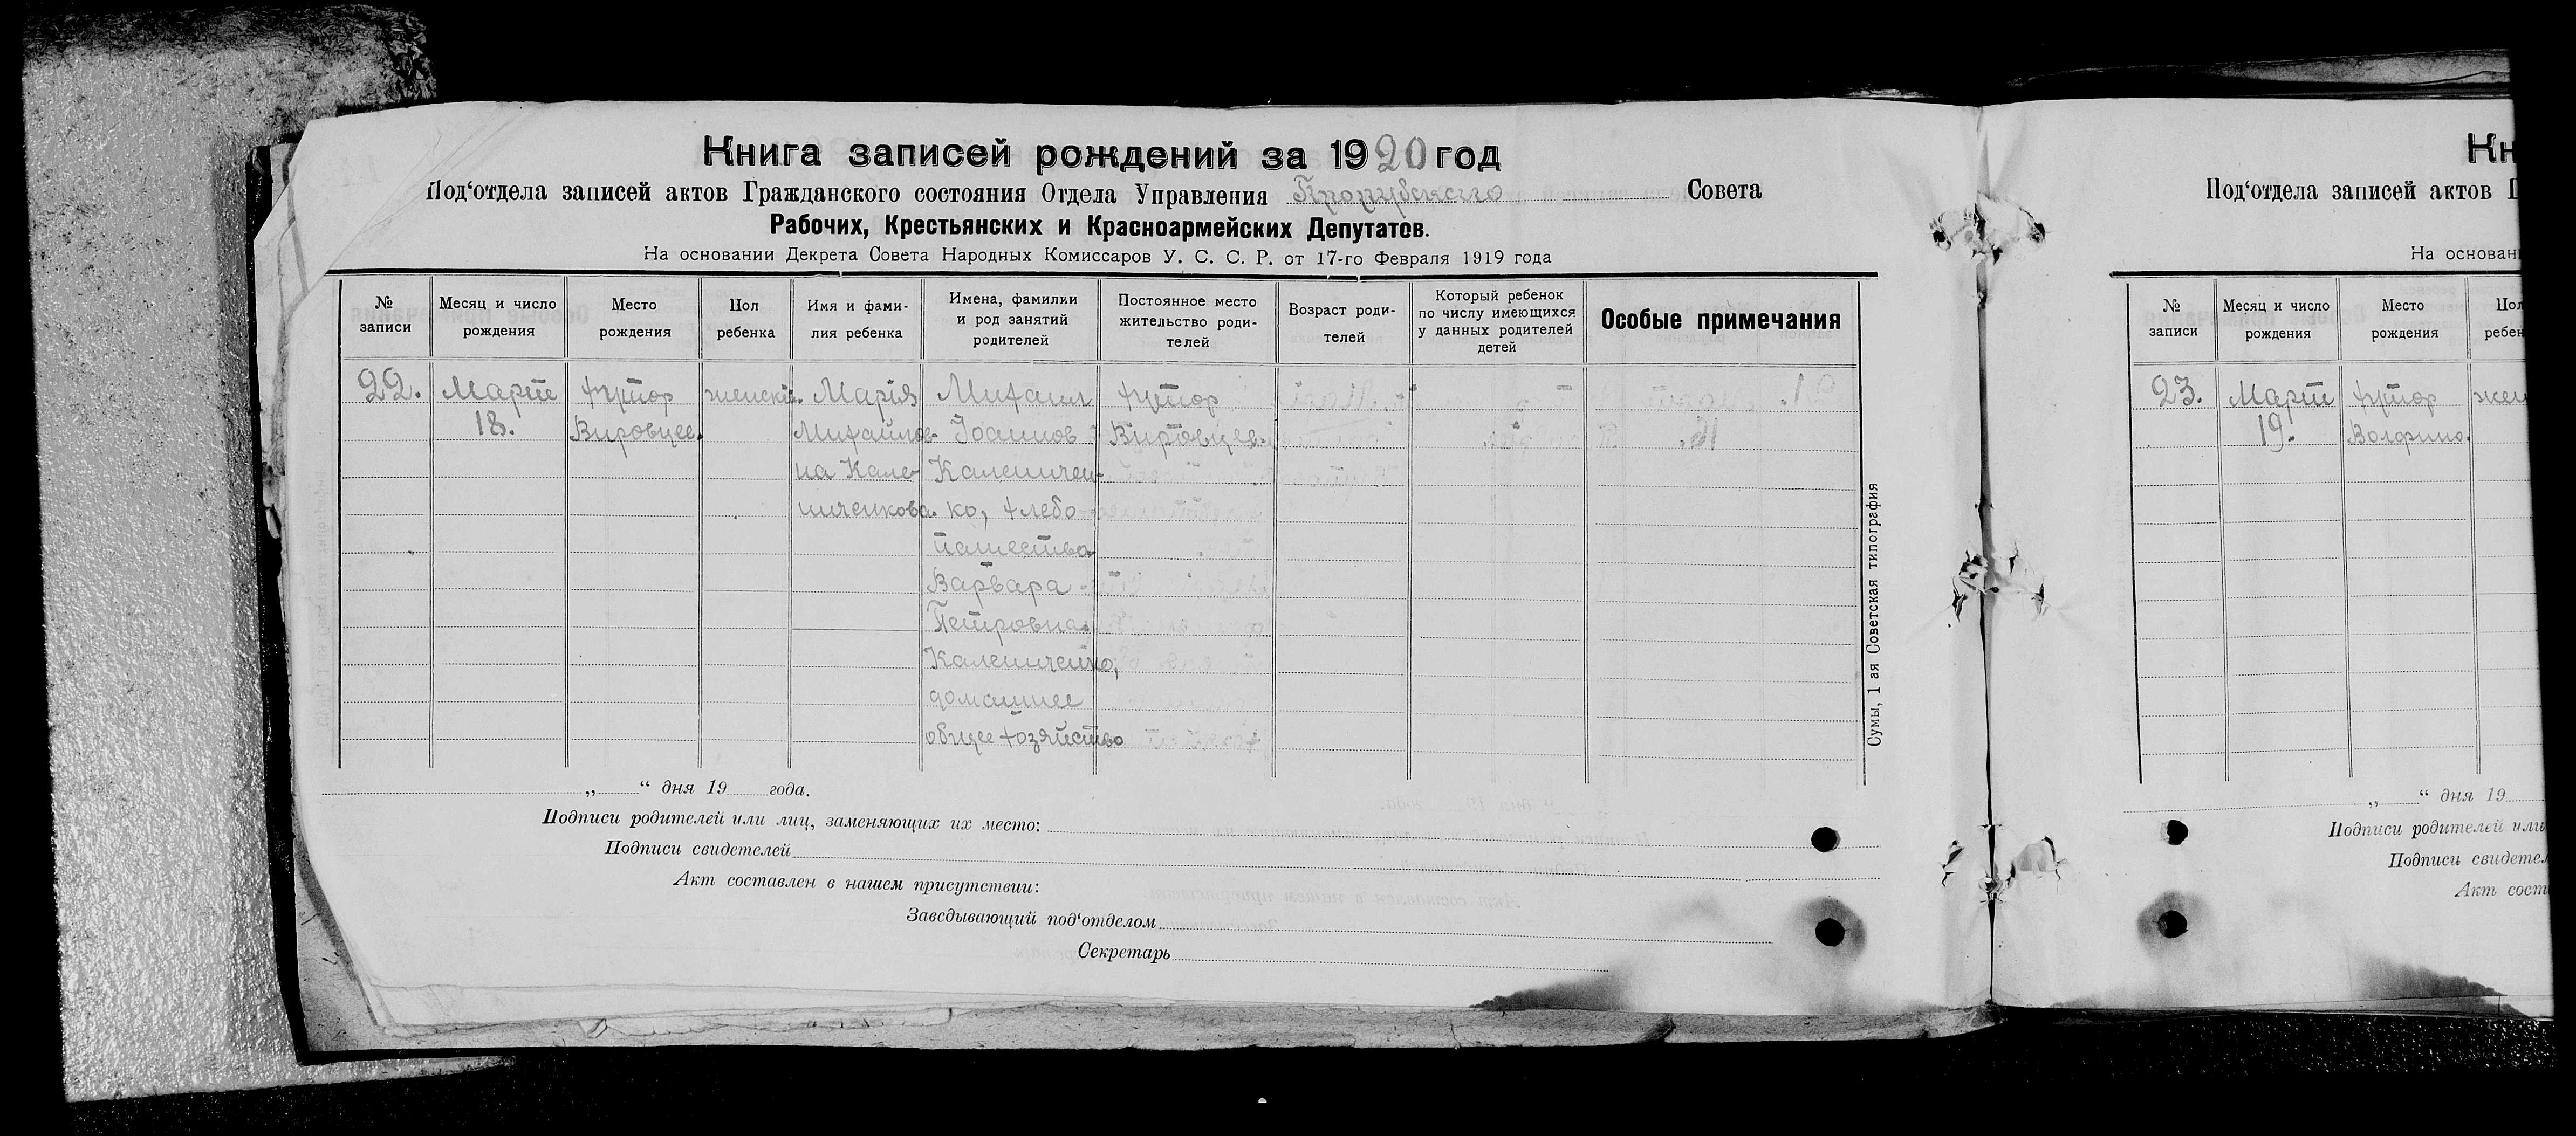 Книга записей рождений за 1920 год
Под‘отдела записей актов Гражданского состояния Отдела Управления Совета
Рабочих, Крестьянских и Красноармейских Депутатов.
На основании Декрета Совета Народных Комиссаров У. С. С. Р. от 17-го Февраля 1919 года
№ записи
Месяц и число рождения
Место рождения
Пол ребенка
Имя и фами-
лия ребенка
Имена, фамилии
и род занятий
родителей
Постоянное место
жительство роди-
телей
Возраст роди-
телей
Который ребенок
по числу имеющихся
у данных родителей
детей
Особые примечания
22.
Март
18.
хутор
Вировцее.
женскій.
Марія
Михайлов-
на Кале-
ниченкова.
Михаил
Іоаннов
Каленичен-
ко, хлебо
пашество.
Варвара
Петровна
Калениченко,
домашнее
общее хозяйство
хутор
Вировцев.
„ “ дня 19 года.
Подписи родителей или лиц, заменяющих их место:
Подписи свидетелей
Акт составлен в нашем присутствии:
Заведывающий под‘отделом
Секретарь
Сумы, 1 ая Советская типография
Кн
Под‘отдела записей актов Г
На основан
№ записи
Месяц и число рождения
Место рождения
Пол
ребен
23.
Март
19.
хутор
жен
„ “ дня 19
Подписи родителей или
Подписи свидетел
Акт сост